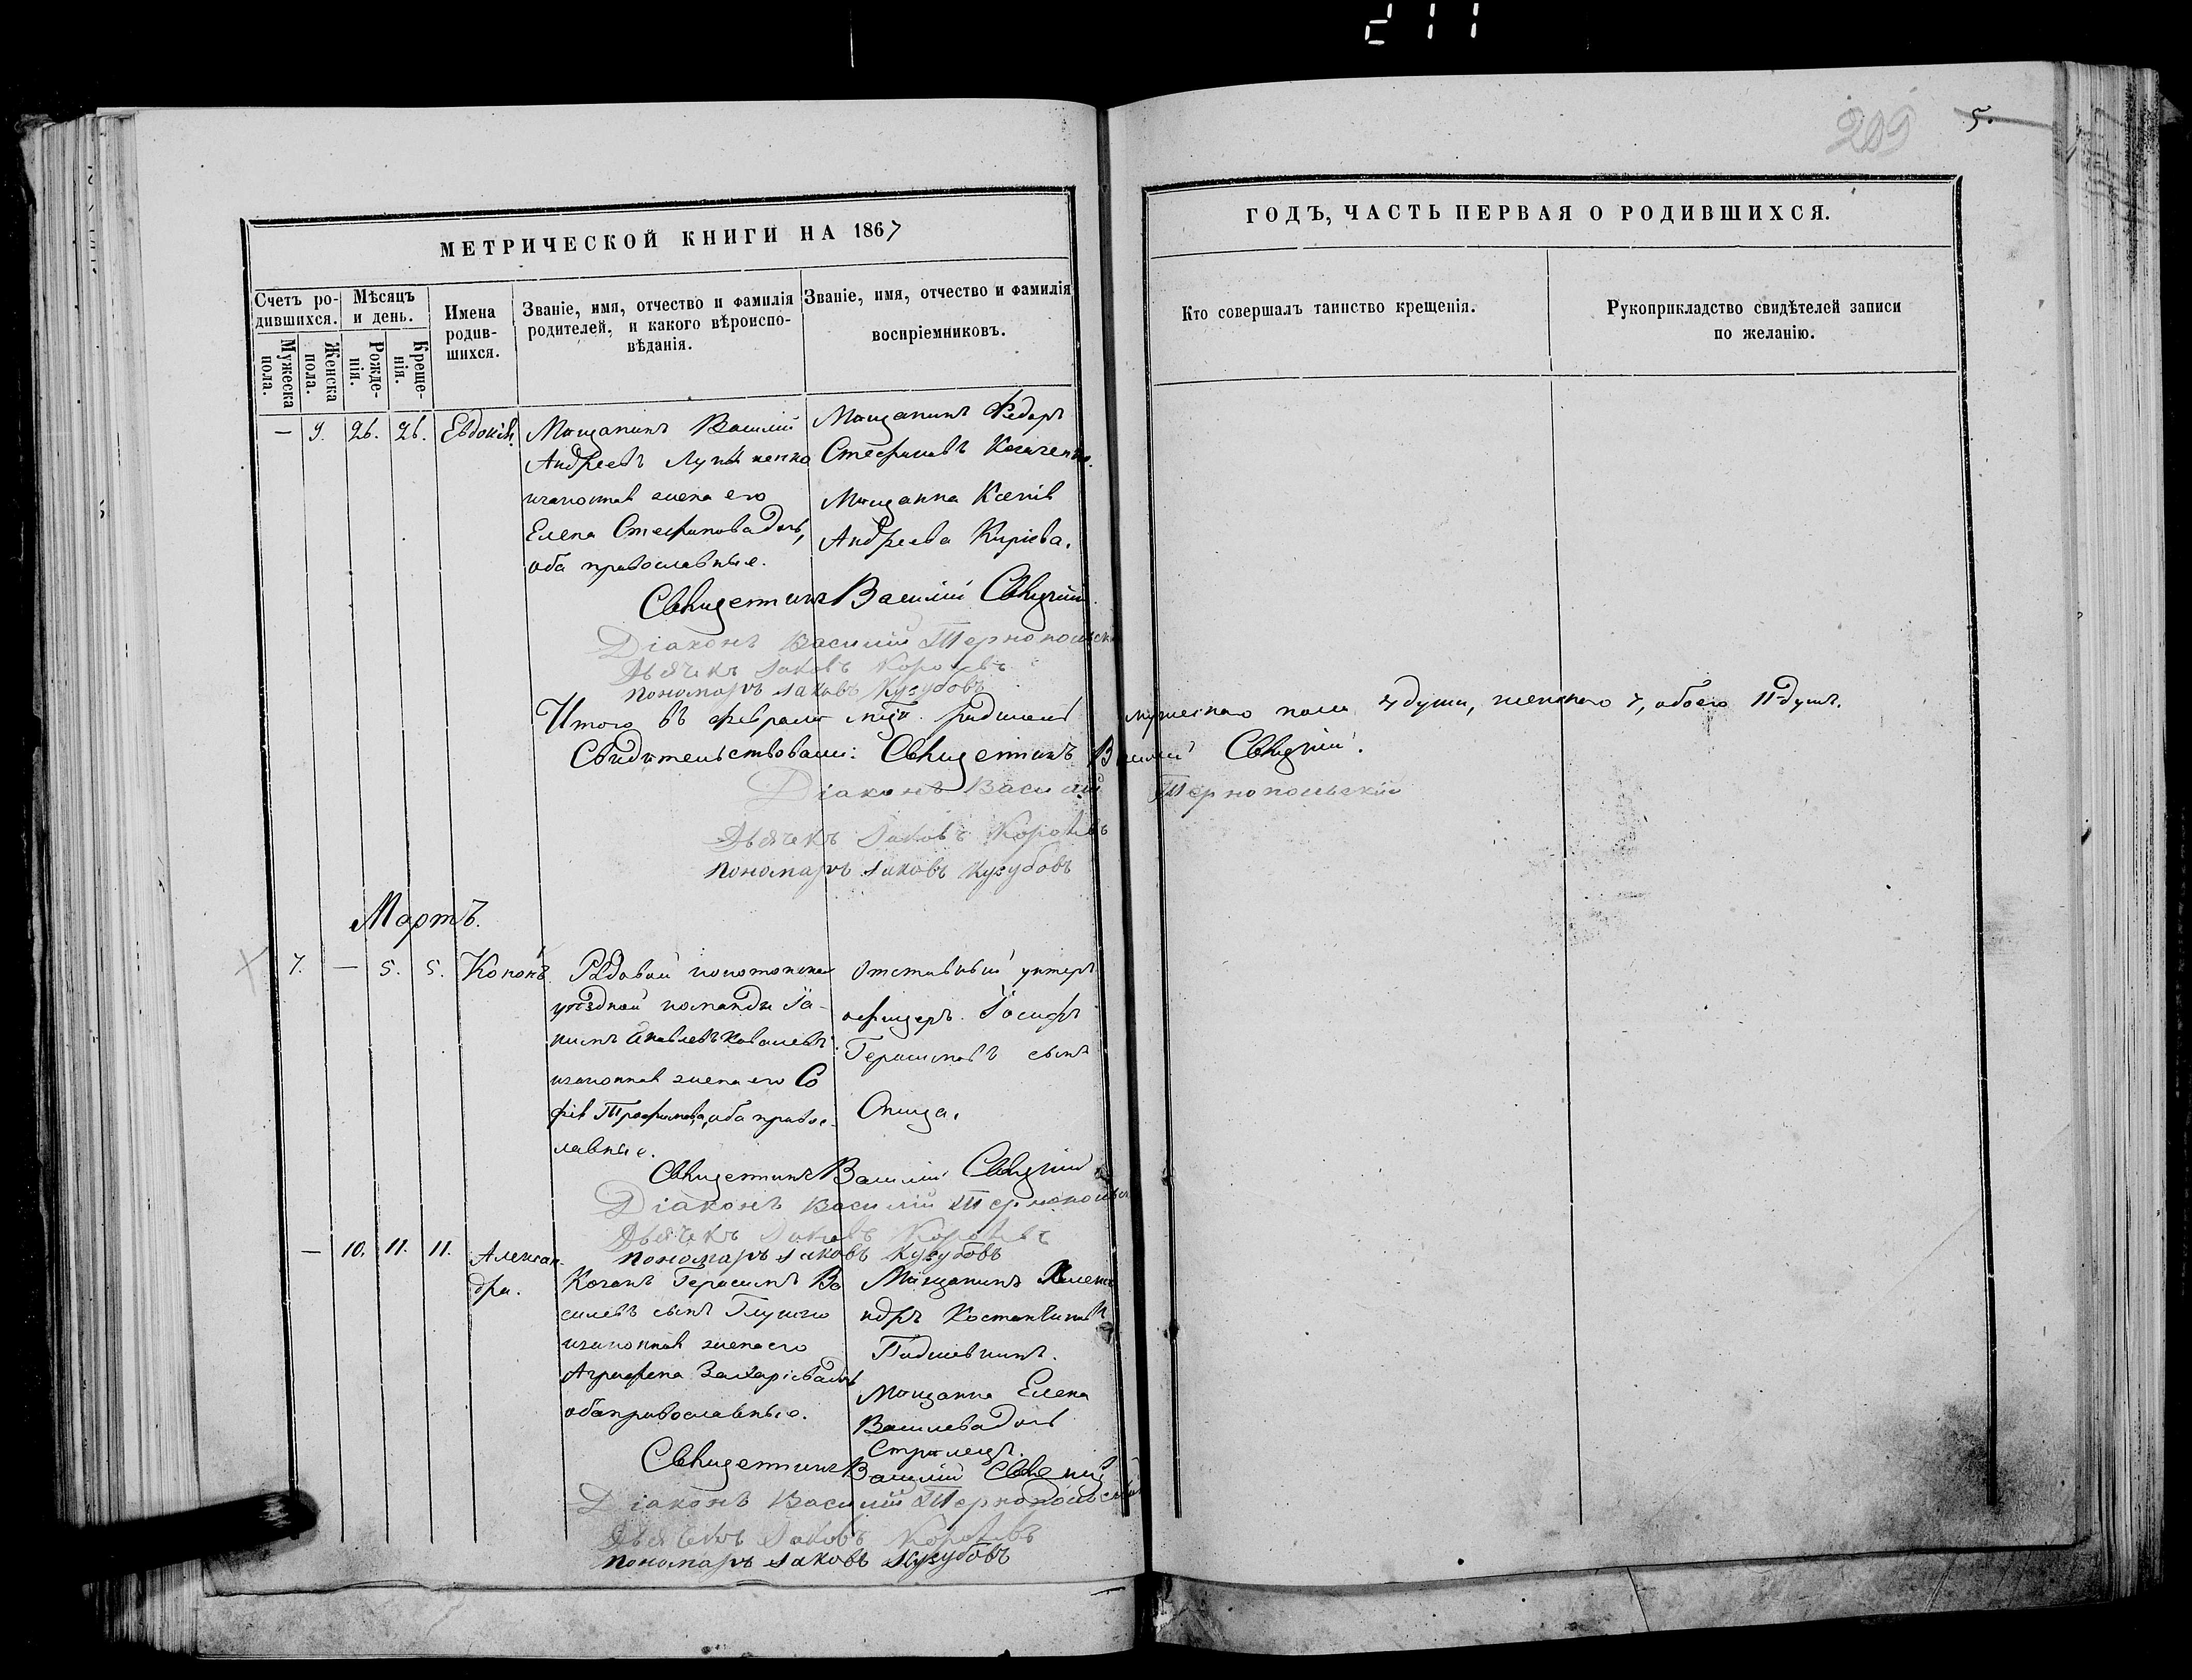 211
209
5.
МЕТРИЧЕСКОЙ КНИГИ НА 1867
ГОДЪ, ЧАСТЬ ПЕРВАЯ О РОДИВШИХСЯ.
Счетъ ро-
дившихся.
Мужеска
пола.
Женска
пола.
Мѣсяцъ
и день.
Рожде-
нія.
Креще-
нія.
Имена
родив-
шихся.
Званіе, имя, отчество и фамилія
родителей, и какого вѣроиспо-
вѣданія.
Званіе, имя, отчество и фамилія
воспріемниковъ.
Кто совершалъ таинство крещенія.
Рукоприкладство свидѣтелей записи
по желанію.
— 9. 26. 26. Евдокія.
Мѣщанинъ Василій
Андреевъ
изаконная жена его
Елена Стефанова дочь,
оба православные.
Мѣщанинъ Федоръ
Стефановъ
Мѣщанка Ксенія
Андреева Киріева.
Священникъ Василій
Діаконъ Василій Тернопольскій
Дьячекъ Іаковъ
пономарь Іаковъ Кузубовъ
Итого въ февралѣ мцѣ родилось мужескаго пола 4 души, женскаго 7, обоего 11 душъ.
Свидѣтельствовали: Священникъ Василій
Діаконъ Василій Тернопольскій
Дьячекъ Іаковъ
пономарь Іаковъ Кузубовъ
Мартъ.
7. — 5. 5. Кононъ
Рядовой
уѣздной команды Іа-
кимъ Яковлевъ Ковалевъ
изаконная жена его Со
фія Трофимова, оба правос-
лавные.
Отставный унтеръ
офицеръ Іосифъ
Герасимовъ сынъ
Спица.
Священникъ Василій
Діаконъ Василій Тернопольскій
Дьячекъ Іаковъ
пономарь Іаковъ Кузубовъ
— 10. 11. 11. Алексан-
дра.
Козакъ Герасимъ Ва
силевъ сынъ
изаконная жена его
Аграфена Захаріева дочь
оба православные.
Мѣщанинъ Алекса
ндръ Костантиновъ
Мѣщанка Елена
Василева дочь
Стрѣлецъ.
Священникъ Василій
Діаконъ Василій Тернопольскій
Дьячекъ Іаковъ
пономарь Іаковъ Кузубовъ